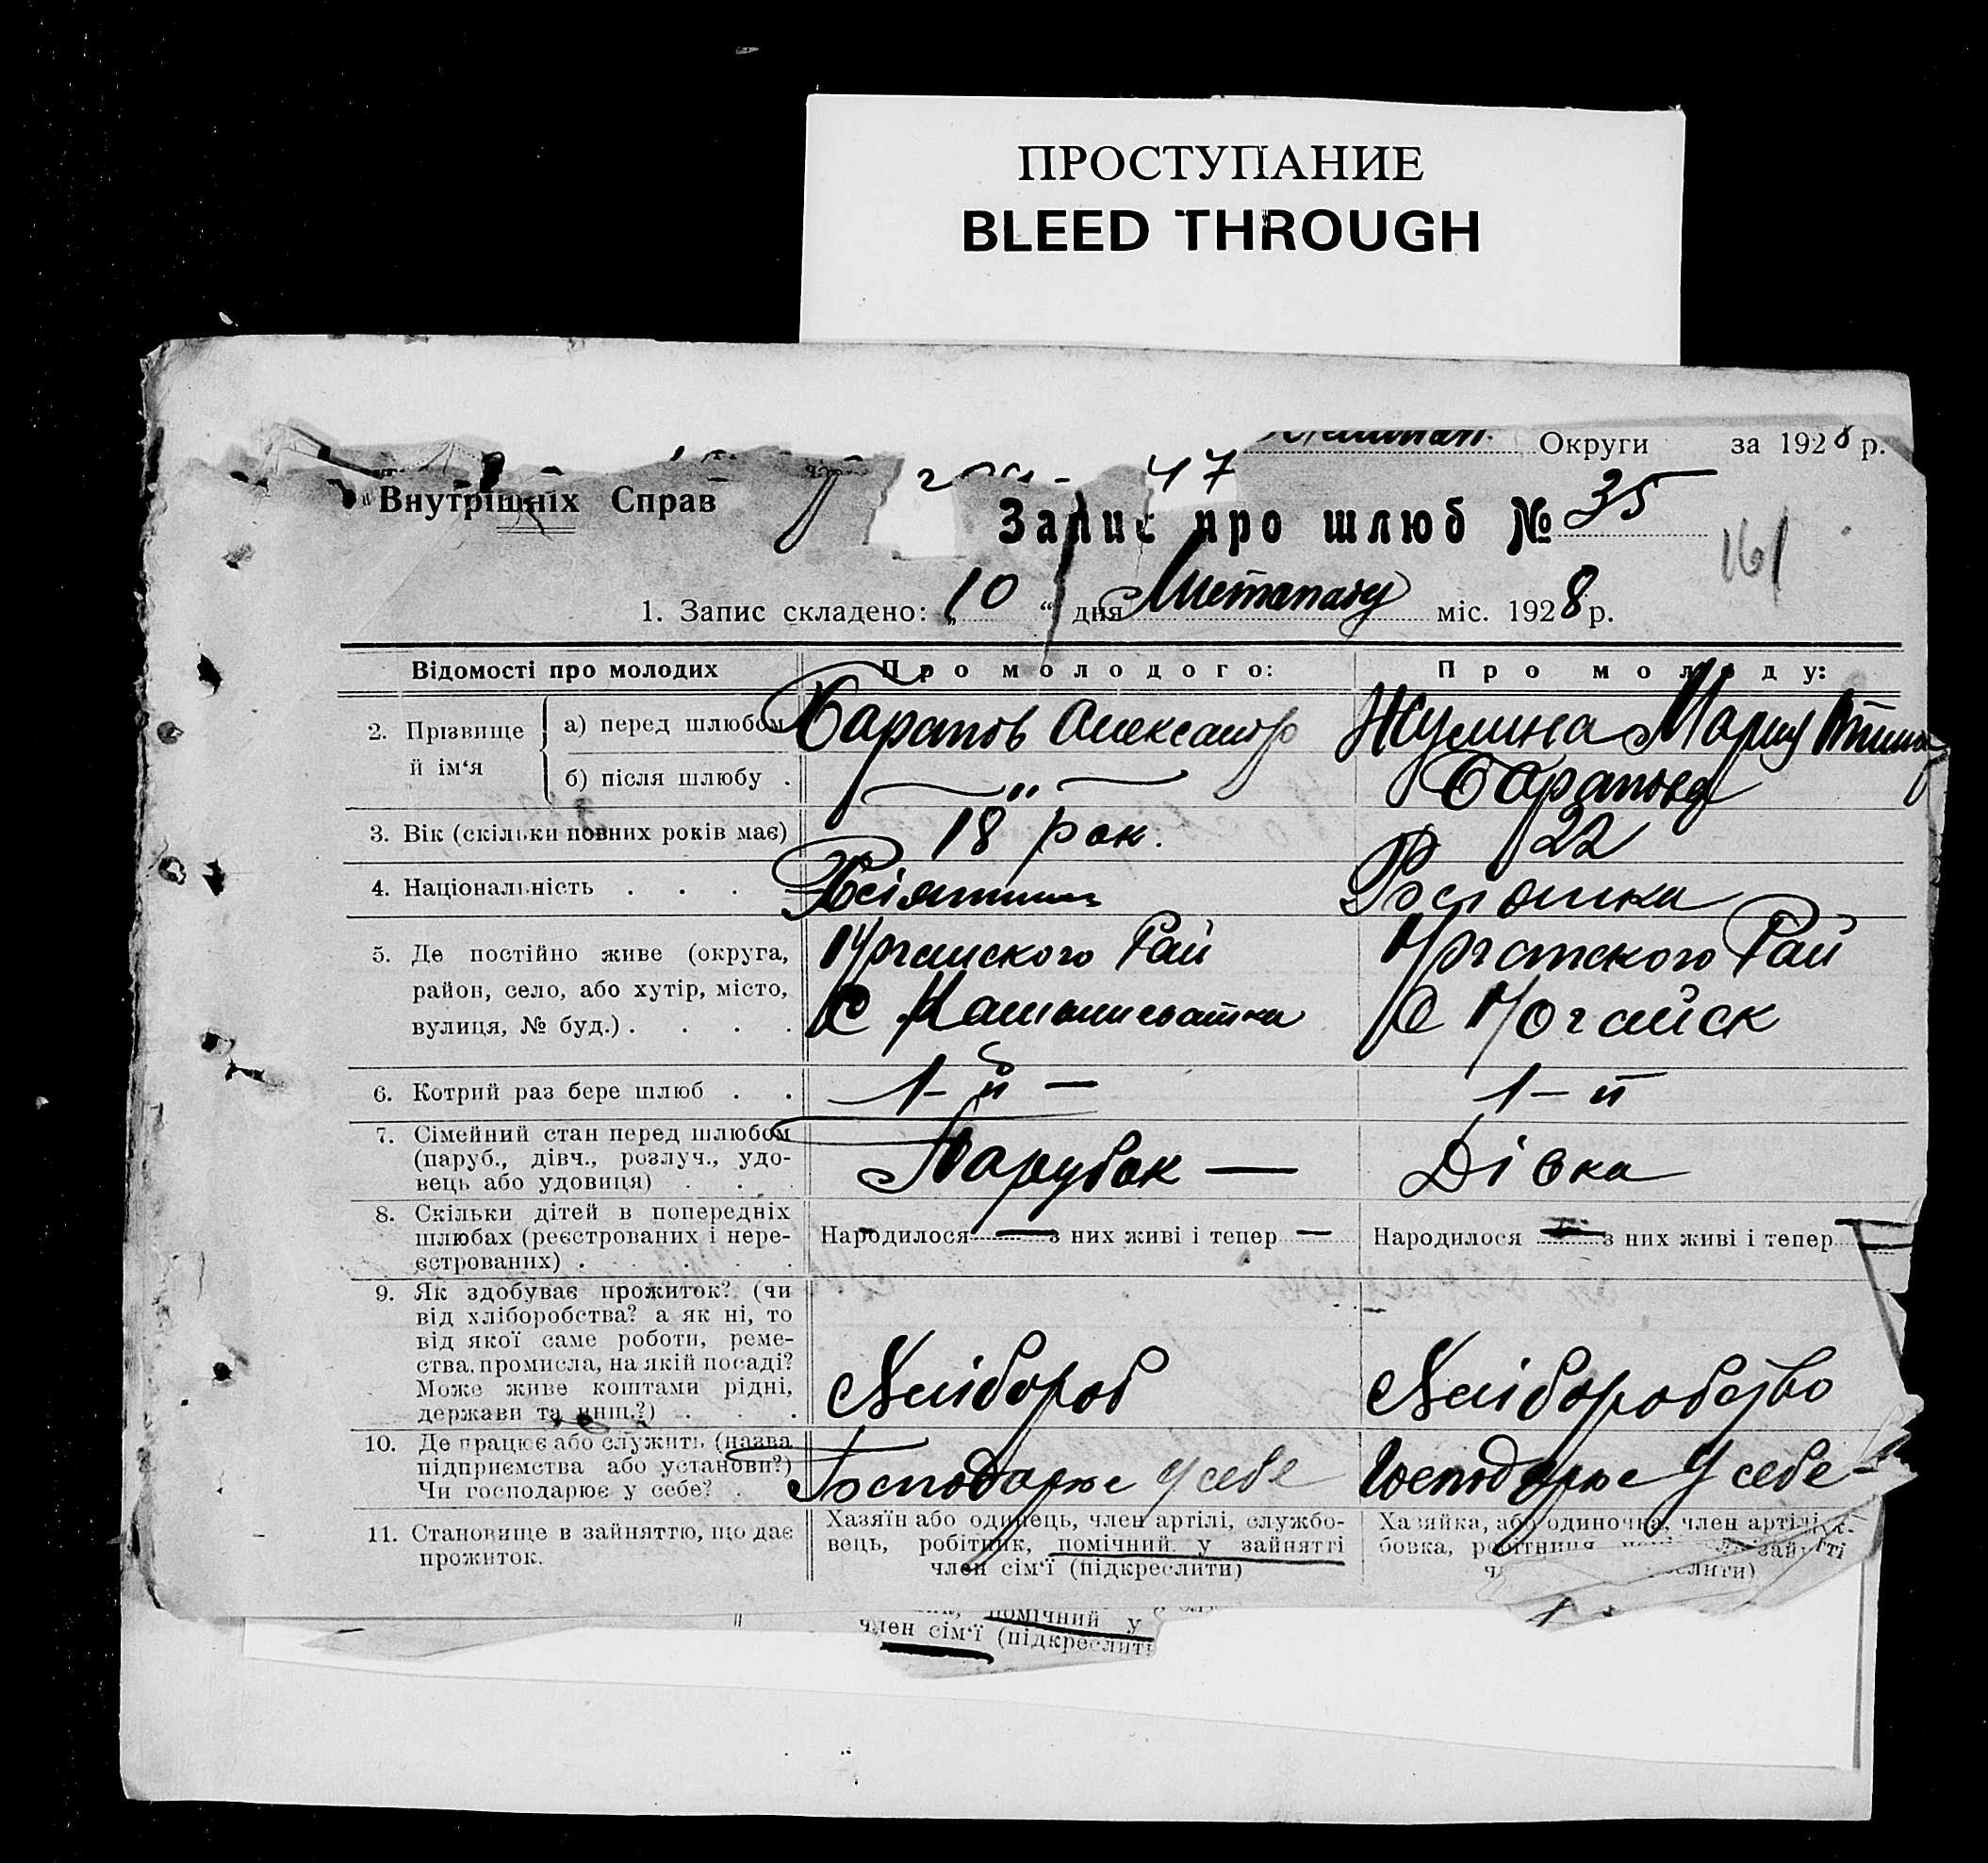 ПРОСТУПАНИЕ
BLEED THROUGH
Округи за 1928 р.
47
Внутрішніх Справ
Запис про шлюб № 35
161
1. Запис складено: „10“ дня міс. 1928 р.
Відомості про молодих Про молодого: Про молоду:
2. Прізвище й ім‘я
а) перед шлюбом Александр Жулина Мария
б) після шлюбу . —„—
3. Вік (скільки повних років має) 18 рок. 22
4. Національність . . . Росіянка
5. Де постійно живе (округа, Рай Рай
район, село, або хутір, місто, С С Ногайск
вулиця, № буд.) . . . .
6. Котрий раз бере шлюб . . 1-й — 1-й
7. Сімейний стан перед шлюбом
(паруб., дівч., розлуч., удо- Парубок — Дівка
вець або удовиця) . . .
8. Скільки дітей в попередніх
шлюбах (реєстрованих і нере- Народилося — з них живі і тепер — Народилося — з них живі і тепер —
єстрованих) . . . . . .
9. Як здобуває прожиток? (чи
від хліборобства? а як ні, то
від якої саме роботи, реме-
ства, промисла, на якій посаді?
Може живе коштами рідні, Хлібороб Хліборобство
держави та инш.?) . . .
10. Де працює або служить (назва
підприємства або установи?) Господарює у себе Господарює у себе
Чи господарює у себе? .
11. Становище в зайняттю, що дає
прожиток.
Хазяїн або одинець, член артілі, службо-
вець, робітник, помічний у зайнятті
член сім‘ї (підкреслити)
Хазяйка, або одиночка, член артілі,
бовка, робітниця зайнятті
помічний у
член сім‘ї (підкреслити